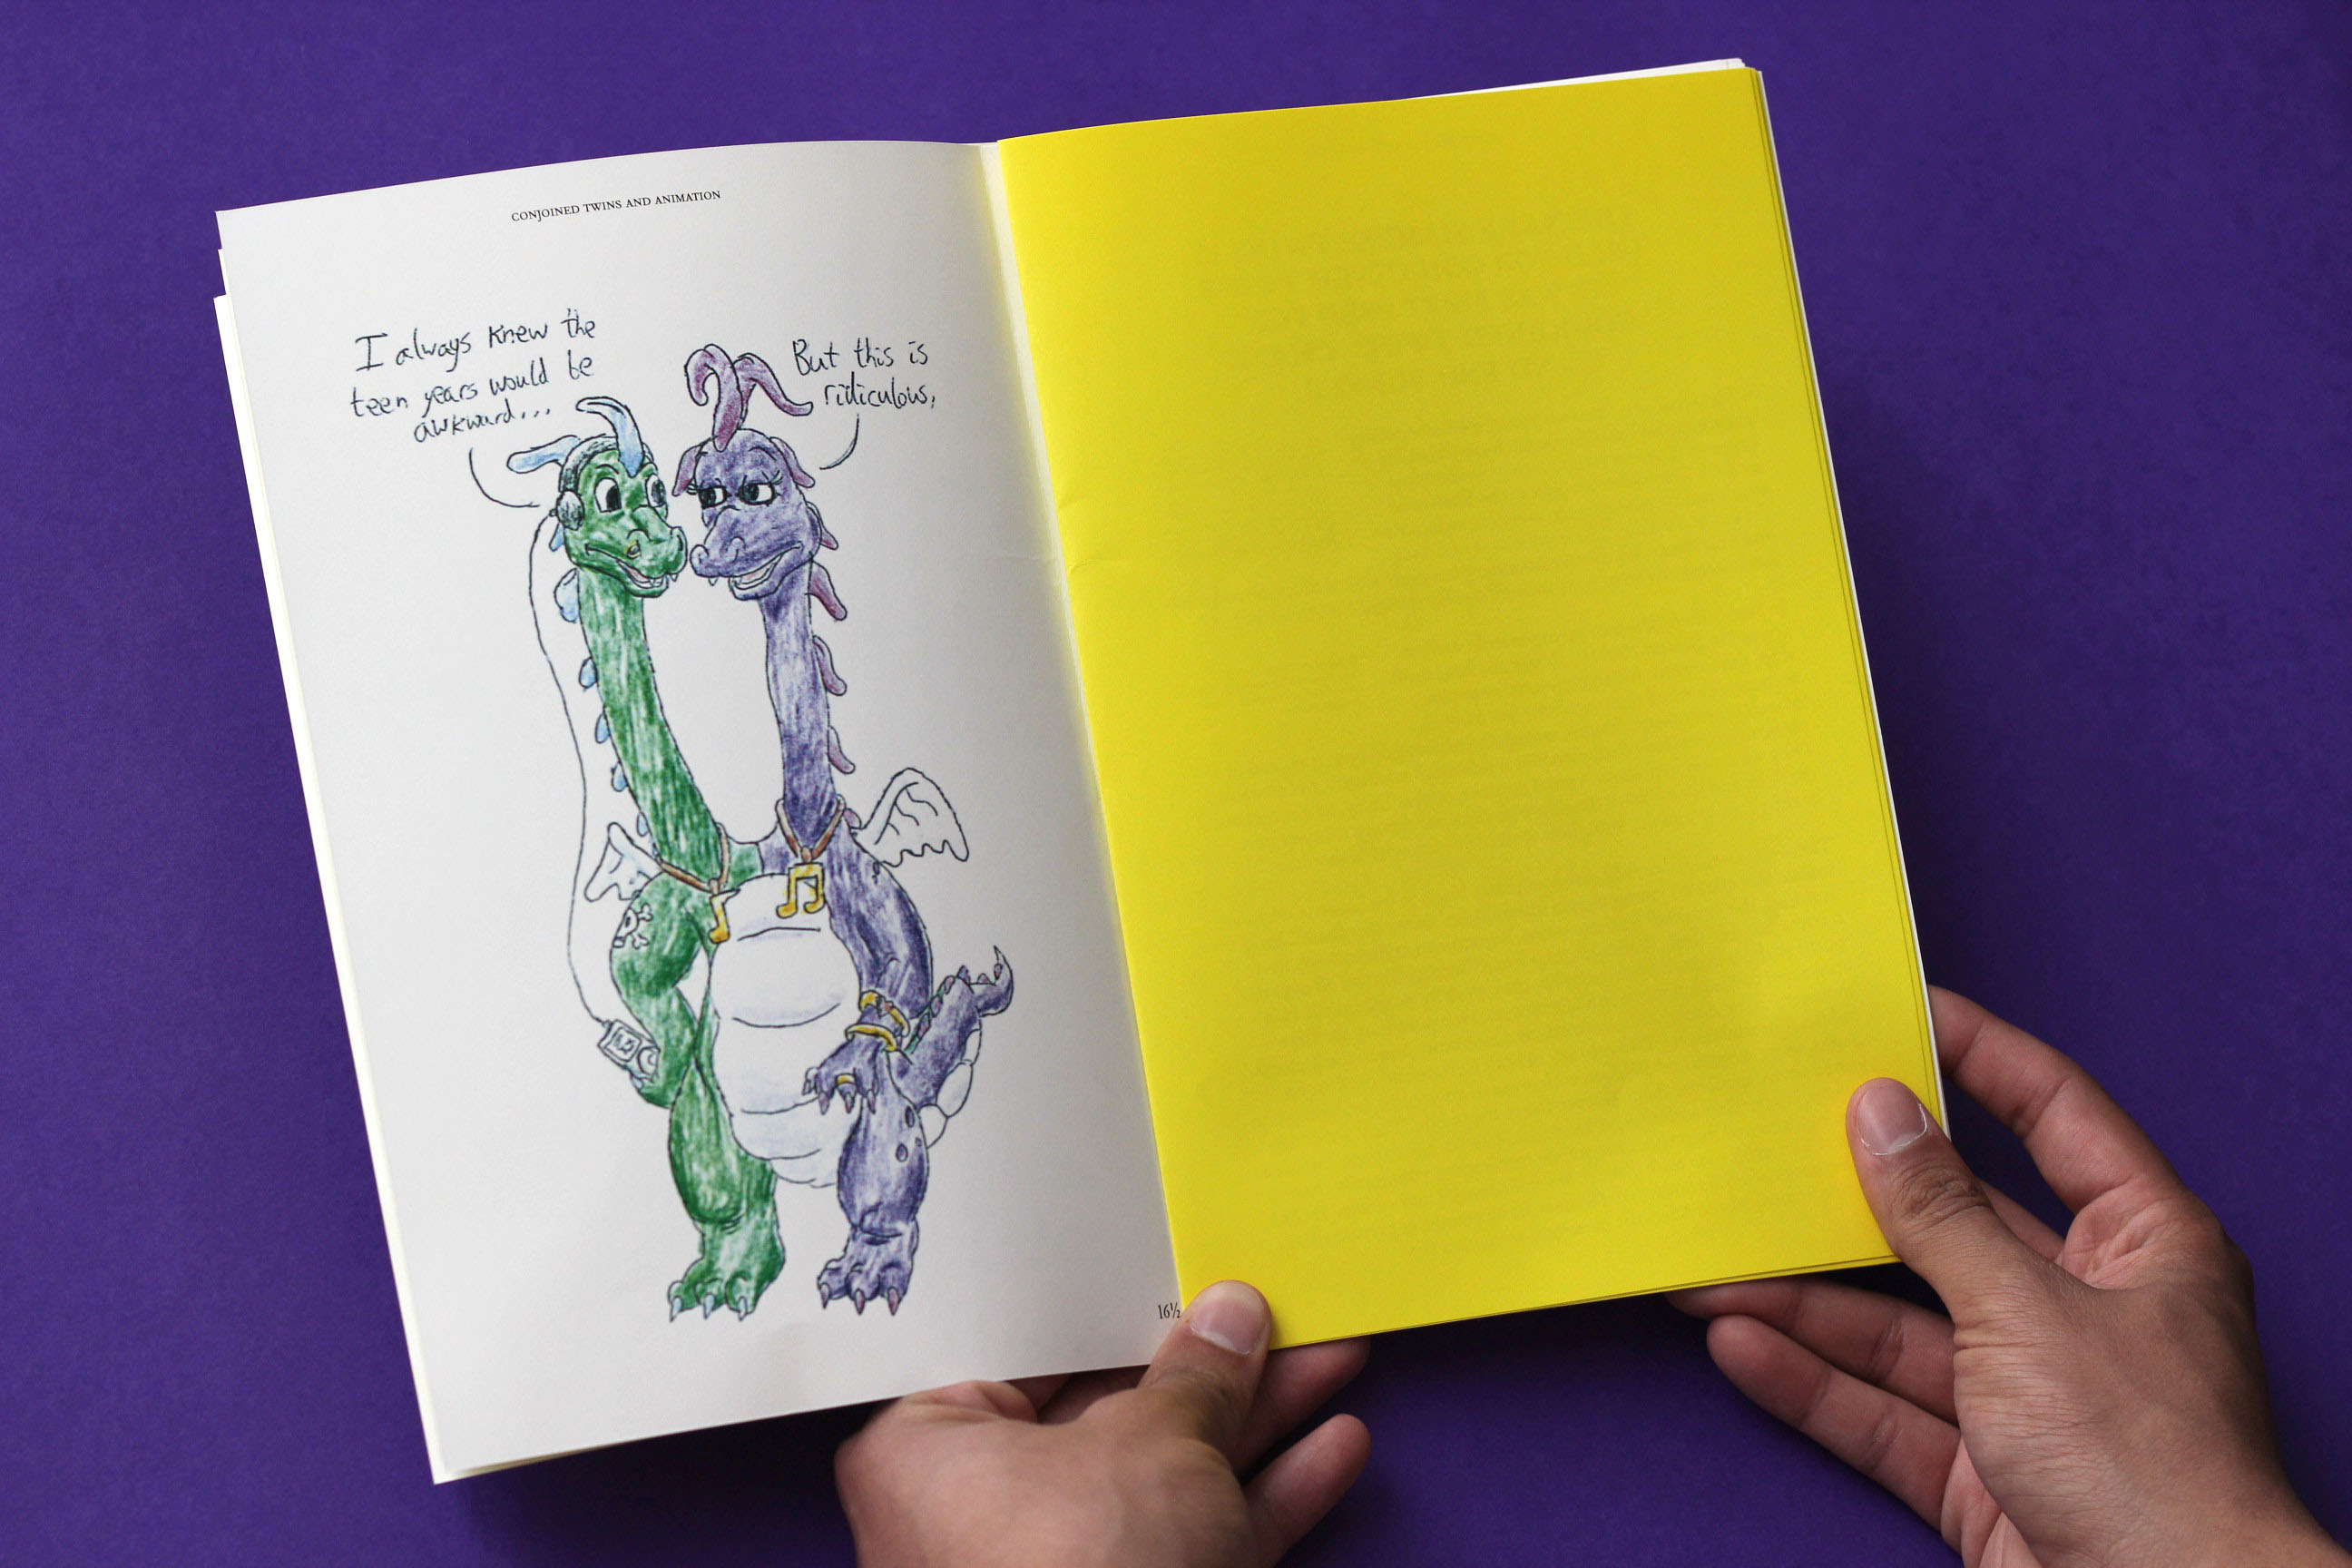 CONJOINED TWINS AND ANIMATION
I always knew the
teen years would be
awkward...
But this is
ridiculous,
16½